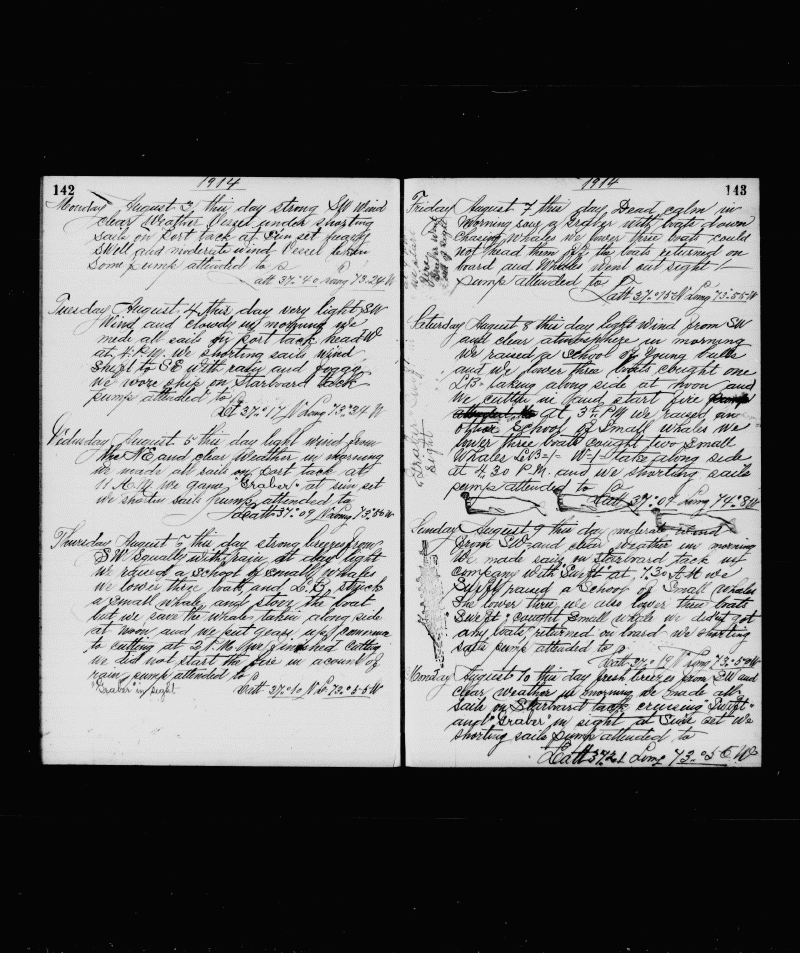 142
1914
Monday August 3, this day strong SW wind
clear Weather Vessel under shorting
sails on Port tack at Sun set
swell and moderate wind Vessel
some pump attended to
Latt 37°40 Long 73°24 W
Tuesday August 4 this day very light SW
Wind and clowdy in morning we
made all sails on Port tack head W
at 4 P.M. We shorting sails wind
shift to SE with rain and foggy
we wore ship on Starbord tack
pump attended to
Latt 37°17 N Long 73°34 W
August 5 this day light wind from
the NE and clear Weather in morning
we made all sail on Port tack at
11 A.M we game "Graber" at sun set
we shortin sails Pump attended to
Latt 37°09 N Long 73°56 W
Thursday August this day strong breezes from
SW Squally with rain, at day light
we raised a School of Small Whales
we lower three boats and L.B. struck
a small whale and stove the boat
but we save the whale taken along side
at noon and we put gears up
to cutting at finished cutting
we did not start the fire in acount of
rain pump attended to
"Graber" in sight Latt 37°10 N Lo 73°55 W
143
1914
Friday August 7 this day Dead calm in
Morning saw a Graber with boats down
Chasing Whales we lower three boats could
not head them off the boats returned on
board and Whales went out sight
Pump attended to
Latt 37°15 N Long 73°55 W
Graber
out of sight
Saturday August 8 this day light Wind from SW
and clear atmosphere in morning
We raised a School of Young bulls
and we lower three boats caught one
L.B. taking along side at noon and
we cuttin in and start fire
at 3 P.M we raised an
other School of Small whales we
lower three boats caught two Small
Whales L.B=1 W=1 take along side
at 4.30 P.M. and we shorting sails
pump attended to
Latt 37°09 Long 74°8 W
Graber
sight
Sunday August 9 this day moderate wind
from SW and clear weather in morning
We made sails on Starbord tack in
company with Swift at 7.30 A.M we
Swift raised a School of Small whales
She lower three we also lower three boats
Swift caught Small whale we didn't got
any boats returned on board we shorting
sails pump attended to
Latt 37°19 N Long 73°50 W
Monday August 10 this day fresh breezes from SW and
clear weather in morning we made all
sails on Starbord tack cruising "Swift"
and "Graber" in sight at Sun set we
shorting sails Pump attended to
Latt 37°21 Long 73°56 W